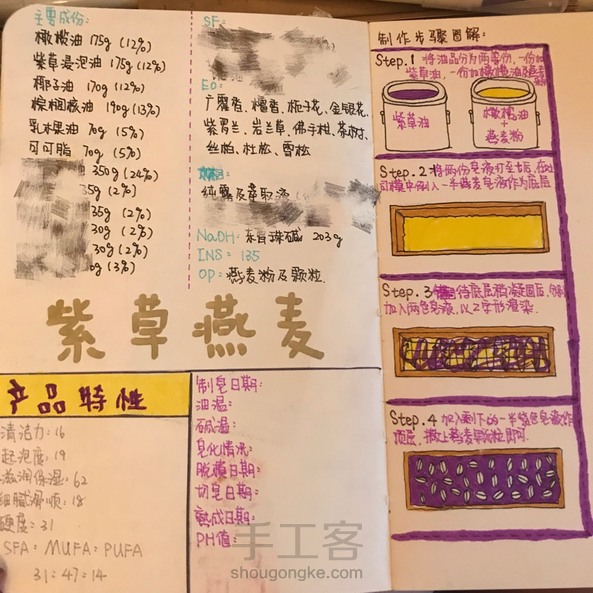 主要成份:
橄榄油 175g (12%)
紫草浸泡油 175g (12%)
椰子油 170g (12%)
棕榈核油 190g (13%)
乳木果油 70g (5%)
可可脂 70g (5%)
油 350g (24%)
35g (2%)
35g (2%)
30g (2%)
30g (2%)
0g (3%)
SF:
EO:
广藿香、檀香、栀子花、金银花、
紫罗兰、岩兰草、佛手柑、茶树、
丝柏、杜松、雪松
纯露及萃取液
NaDH: 东青珠碱 203g
INS: 135
OP: 燕麦粉及颗粒
紫草燕麦
产品特性
清洁力: 16
起泡度: 19
滋润保湿: 62
细腻滑顺: 18
硬度: 31
SFA: MUFA: PUFA
31:47:14
制皂日期:
油温:
碱温:
皂化情况:
脱模日期:
切皂日期:
熟成日期:
PH值:
制作步骤图解:
Step.1 将油品分为两等份,一份加
紫草油,一份加橄榄油及燕麦
紫草油
橄榄油
+
燕麦粉
Step.2 将两份皂液打至
模中倒入一半燕麦皂液作为底层
Step.3 待底层稍凝固后,
加入两色皂液,以Z字形渲染.
Step.4 加入剩下的一半紫色皂液作
顶层,撒上燕麦颗粒即可.
手工客
shougongke.com